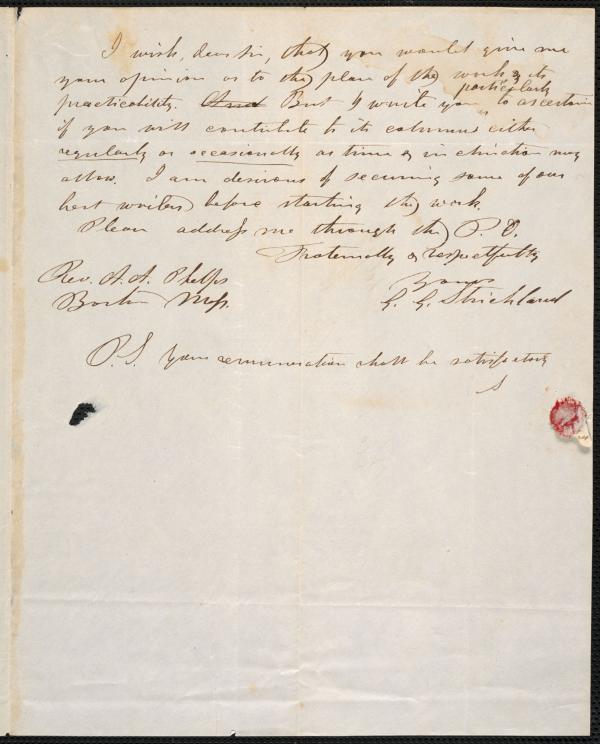 I wish, dear sir, that you would give me
your opinion as to the plan of the work & its
practicability. And But I write you particularly to ascertain
if you will contribute to its columns either
regularly or occasionally as time & inclination may
allow. I am desirous of securing some of our
best writers before starting the work.
Please address me through the P. O.
Fraternally & respectfully
Yours
Rev. A. A. Phelps
G. G. Strickland
Boston Mass.
P.S. Your remuneration shall be satisfactory
S